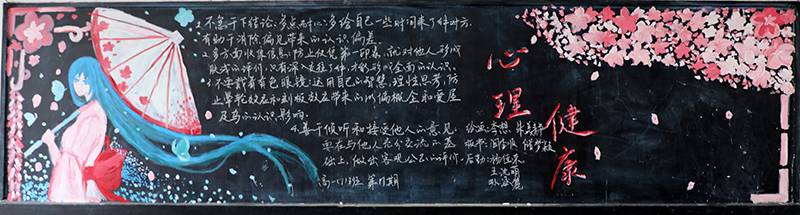 1.不急于下结论,多点耐心,多给自己一些时间来了解对方,
有助于消除偏见带来的认识偏差。
2.多方面收集信息,防止仅凭第一印象,就对他人形成
版式的评价,只有深入交往了解才能形成全面的认识。
3.不要戴着有色眼镜,运用自己的智慧,理性思考,防
止晕轮效应和刻板效应带来的以偏概全和爱屋
及乌的认识影响。
4.善于倾听和接受他人的意见,
要在与他人充分交流的基
础上,做出客观公正的评价。
心理健康
绘画:李想
版书:
后勤:
王沈萌
高一(13)班 第11期